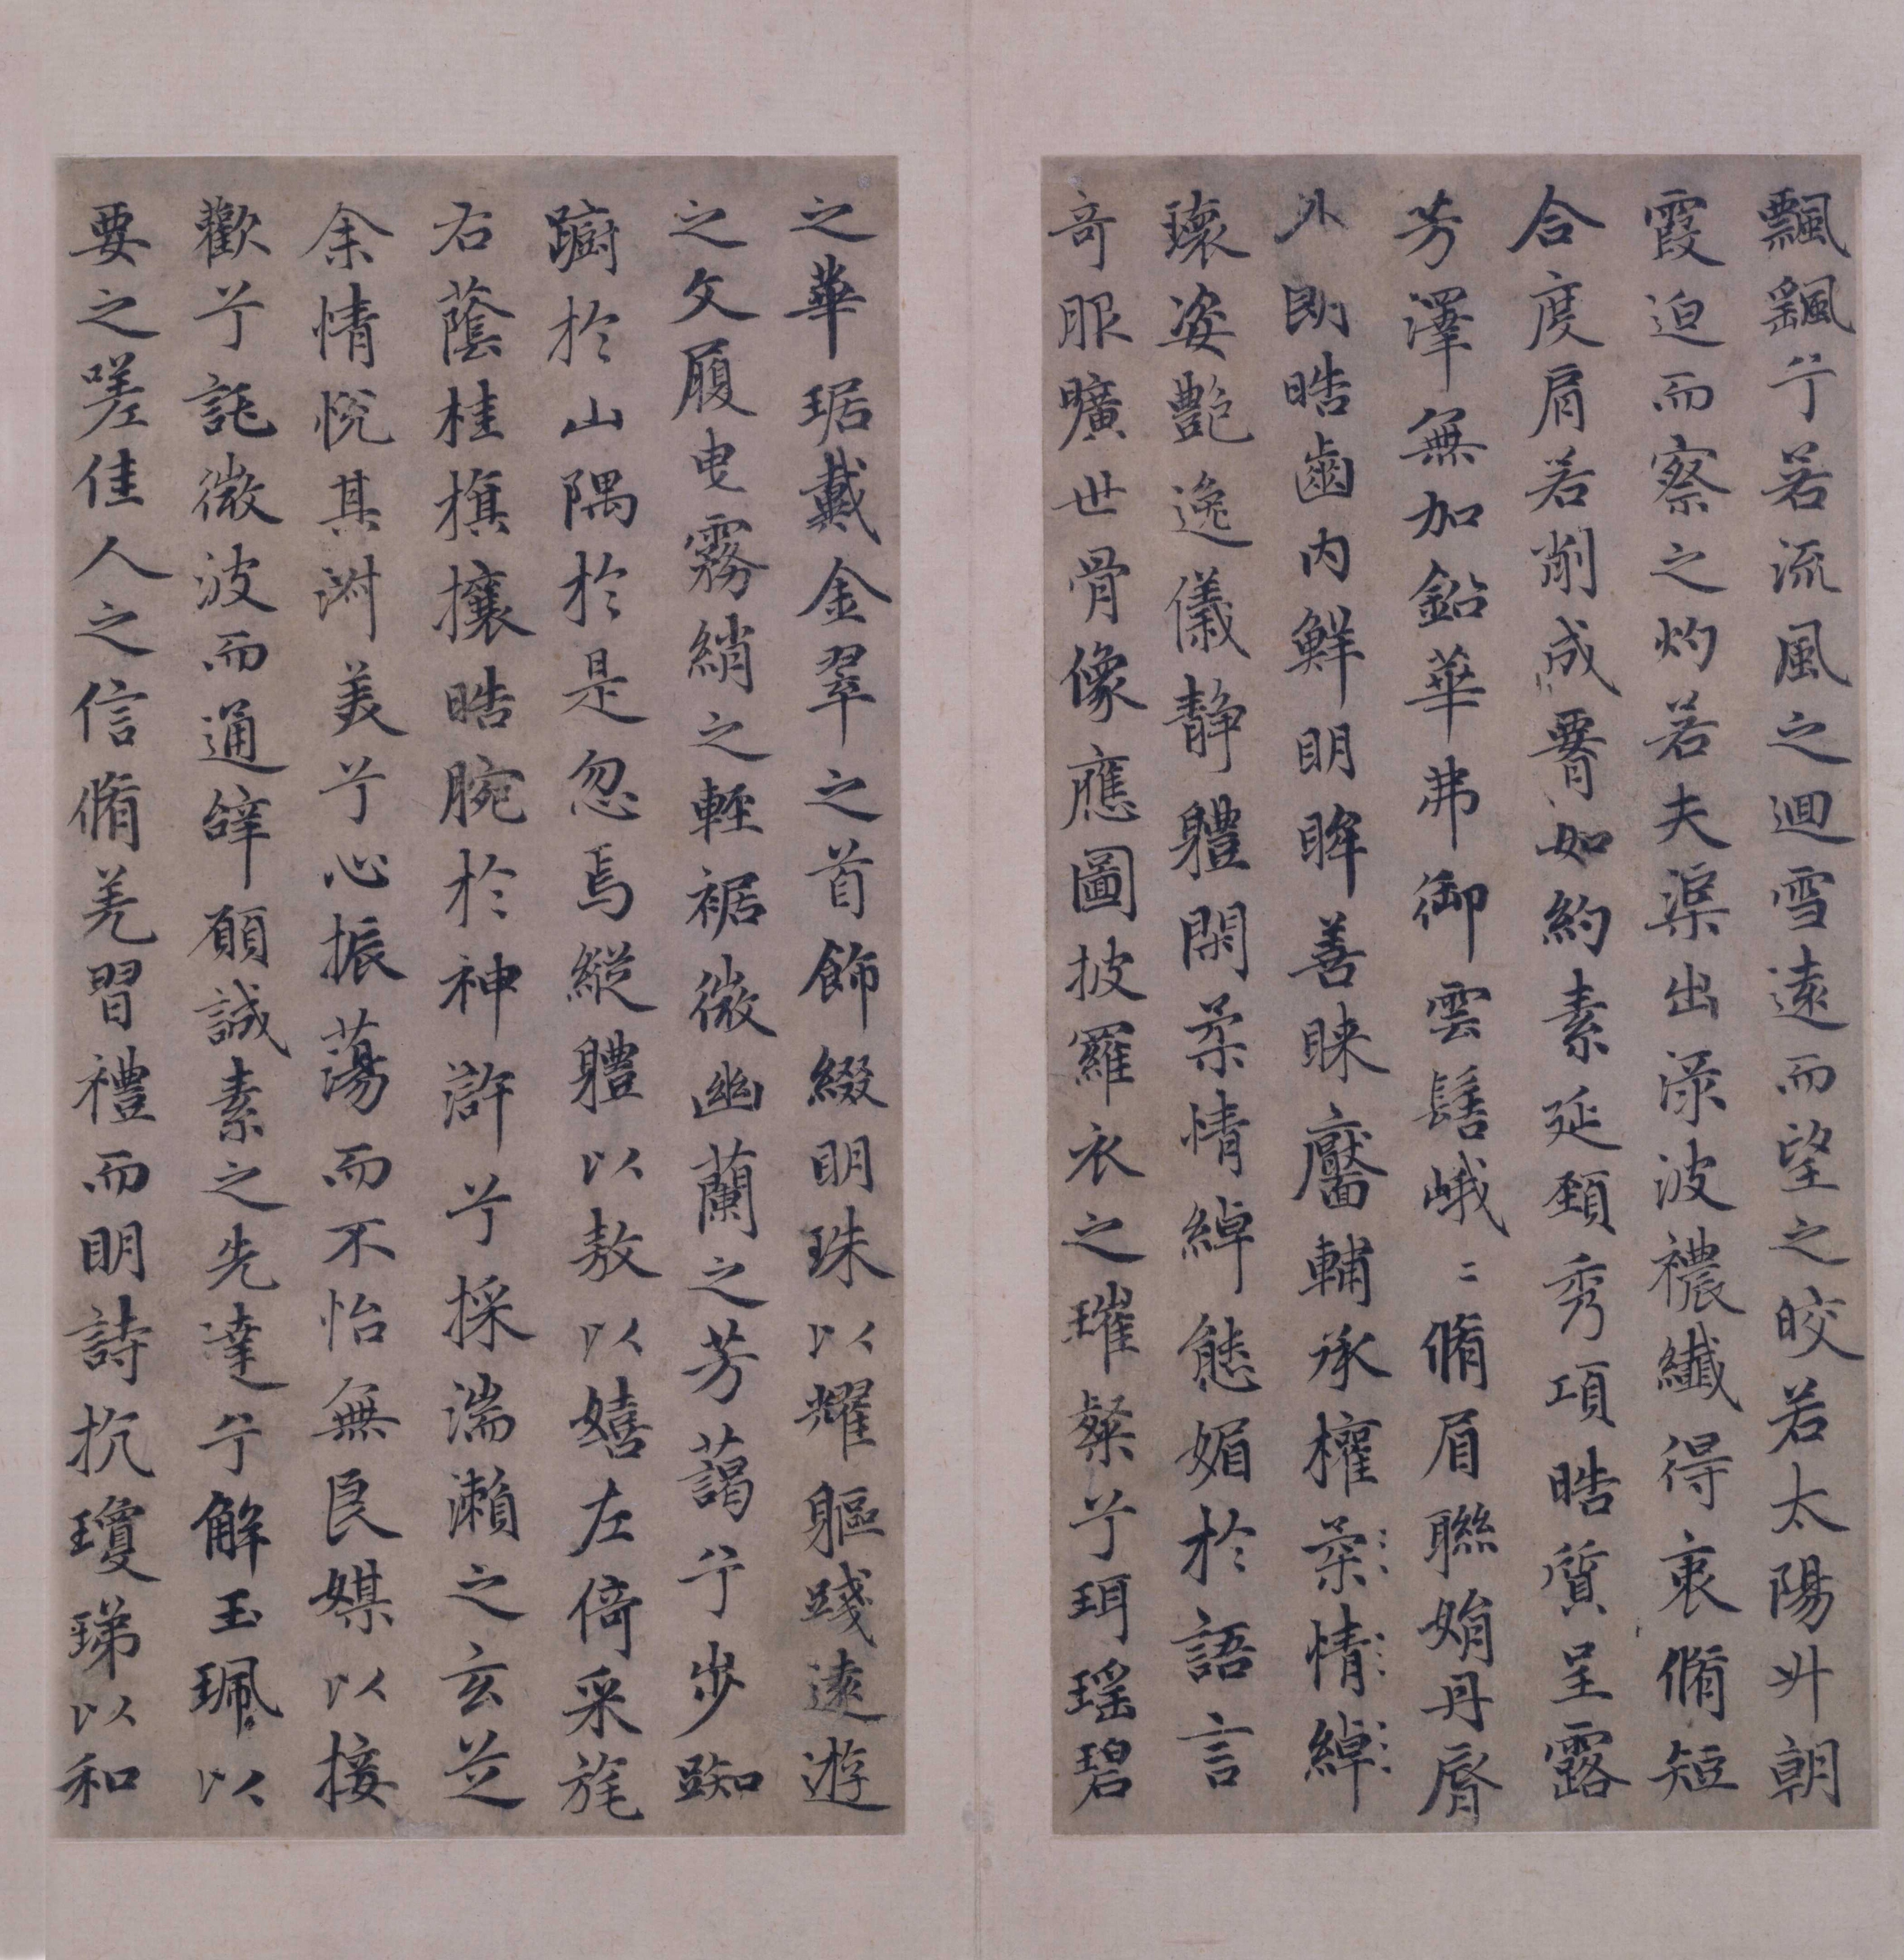 飄飖兮若流風之迴雪遠而望之皎若太陽升朝
霞迫而察之灼若夫渠出渌波襛纖得衷脩短
合度肩若削成䙅如約素延頸秀項晧質呈露
芳澤無加鉛華弗御雲髻峨〻脩眉聯娟丹脣
外朗晧齒内鮮明眸善睞靨輔承權柔情綽
瓌姿艷逸儀静軆閑柔情綽態媚於語言
奇服曠世骨像應圖披羅衣之璀粲兮珥瑶碧
之華琚戴金翠之首飾綴明珠以耀軀踐遠遊
之文履曳霧綃之輕裾微幽蘭之芳藹兮步踟
躕於山隅於是忽焉縱軆以敖以嬉左倚采旄
右蔭桂旗攘晧腕於神滸兮採湍瀨之玄芝
余情悦其淑美兮心振蕩而不怡無良媒以接
歡兮託微波而通辭願誠素之先達兮解玉珮以
要之嗟佳人之信脩羌習禮而明詩抗瓊珶以和